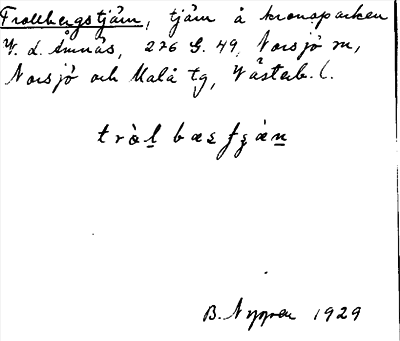 Trollbergstjärn, tjärn å kronoparken
V. d. Åmnäs, 276 G. 49, Norsjö sn,
Norsjö och Malå tg, Västerb. l.
tròl bæsfʒæ̀n
B. Nyman 1929